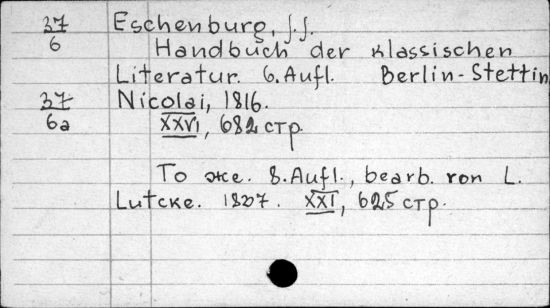 37/6 Eschenburg, J.J.
Handbuch der klassischen
Literatur. 6. Aufl. Berlin-Stettin
37/6a Nicolai, 1816.
XXVI, 682 стр.
То же. 8. Aufl., bearb. von L.
Lutcke. 1837. XXI, 625 стр.